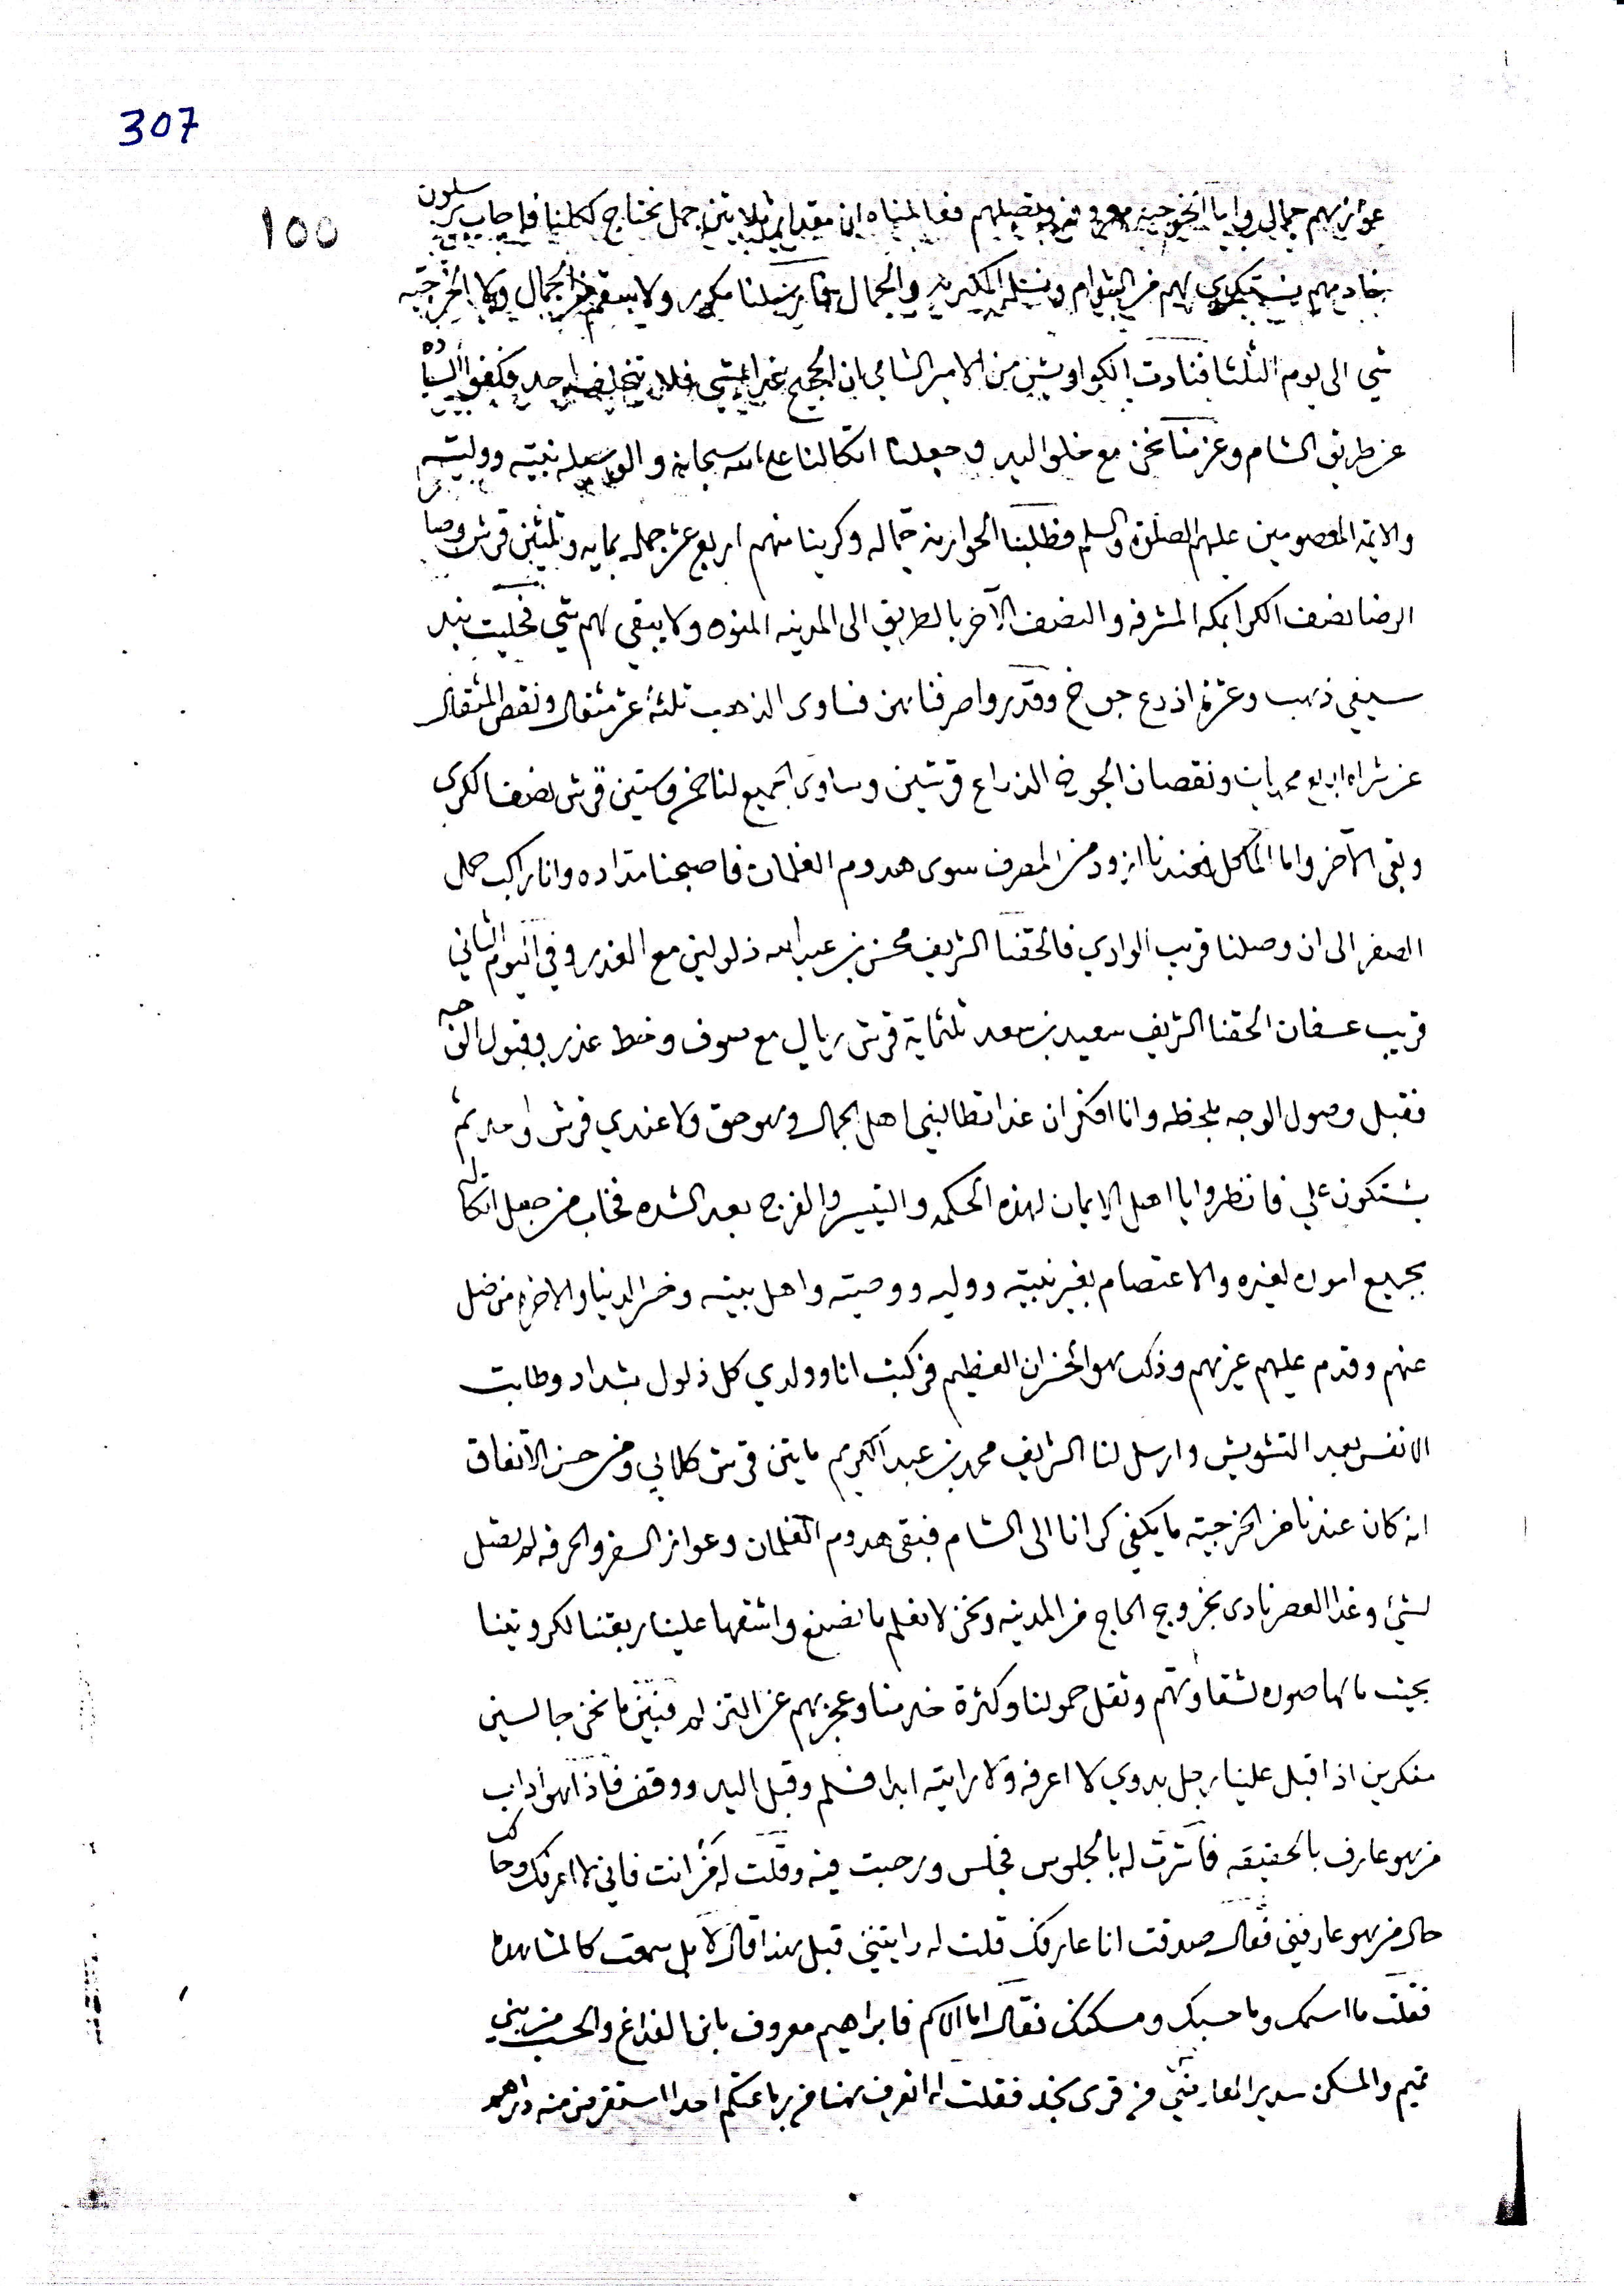 307
١٥٥
عوازيهم جمال واما الخرجيه معروفين ويصلهم فعالمناه ان مقدار ثلاثين جمل نحتاج لكلنا فاجاب يرسلون
خادمهم يستكري لهم من الشوام ونستلم الكيرية والجمال فما رسلنا مكرر ولا يبقى من الجمال ولا الخرجيه
شي الى يوم الثلثا فنادت الكواويش من الامير الشامي ان الحجيج غدا يمشي فلا يتخلف احد فكفوا السياده
عن طريق الشام وعزمنا نحن مع خلو اليد وجعلنا اتكالنا على الله سبحانه والوسيله نبيه ووليه
والايمه المعصومين عليهم الصلوة والسلم فطلبنا الحوازمه جماله وكرينا منهم اربع عشر جمله بمايه وثلثين قرش وصار
الرضا نصف الكرا بمكه المشرفه والنصف الآخر بالطريق الى المدينه المنوره ولا يبقى لهم شي فخليت بند
سيفي ذهب وعشرة اذرع جوخ وقدر واصرفناهن فساوى الذهب ثلثة عشر مثقال ونقص المثقال
عن شراه اربع محمديات ونقصان الجوخ الذراع قرشين وساوى الجميع لنا خمس وستين قرش نصف الكرى
وبقى الآخر واما الماكل فعندنا ازود من المصرف سوى هدوم الغلمان فاصبحنا مداده وانا راكب جمل
الصفر الى ان وصلنا قريب الوادي فالحقنا الشريف محسن بن عبدالله ذلولين مع العذر وفي اليوم الثاني
قريب عسفان الحقنا الشريف سعيد بن سعد ثلثماية قرش ريال مع صوف وخط عذر وقبول الوجه
فقبل وصول الوجه بلحظه وانا افكر ان غدا تطالبني اهل الجمال وهو حق ولا عندي قرش واحد ثم
يشتكون علي فانظروا يا اهل الايمان لهذه الحكمه والتيسير والفرج بعد الشده فخاب من جعل اتكاله
بجميع اموره لغيره والاعتصام بغير نبيه ووليه ووصيته واهل بيته وخسر الدنيا والاخره من ضل
عنهم وقدم عليهم غيرهم وذلك هو الخسران العظيم فركبت انا وولدي كل ذلول بشداد وطابت
الانفس بعد التشويش وارسل لنا الشريف محمد بن عبدالكريم مايتين قرش كلابي ومن حسن الاتفاق
انه كان عندنا من الخرجيته ما يكفي كرانا الى الشام فبقى هدوم الغلمان وعوازل السفر والحرفه لم يصل
لشئ وغدا العصر نادى بخروج الحاج من المدينه ونحن لا نعلم ما نصنع واشقها علينا ربقنا لكرويتنا
بحيث ما لها صوره لشقاوتهم وثقل حمولنا وكثرة خدمنا وعجزهم عن التنزله فبين ما نحن جالسين
مفكرين اذا قبل علينا رجل بدوي لا اعرفه ولا رايته ابدا فسلم وقبل اليد ووقف فاذا هو اداب
من هو عارف بالحقيقه فاشرت له بالجلوس فجلس ورحبت فيه وقلت له من انت فاني لا اعرفك وحالك
حال من هو عارفني فقال صدقت انا عارفك قلت له رايتني قبل هذا قال لا بل سمعت كالمشاهده
فقلت ما اسمك وما حسبك ومسكنك فقال اما الاسم فابراهيم معروف بابن الفداغ والحسب من بني
تميم والمسكن سدير العارض من قرى نجد فقلت له اتعرف هنا من جماعتكم احدا استقرض منه دراهم